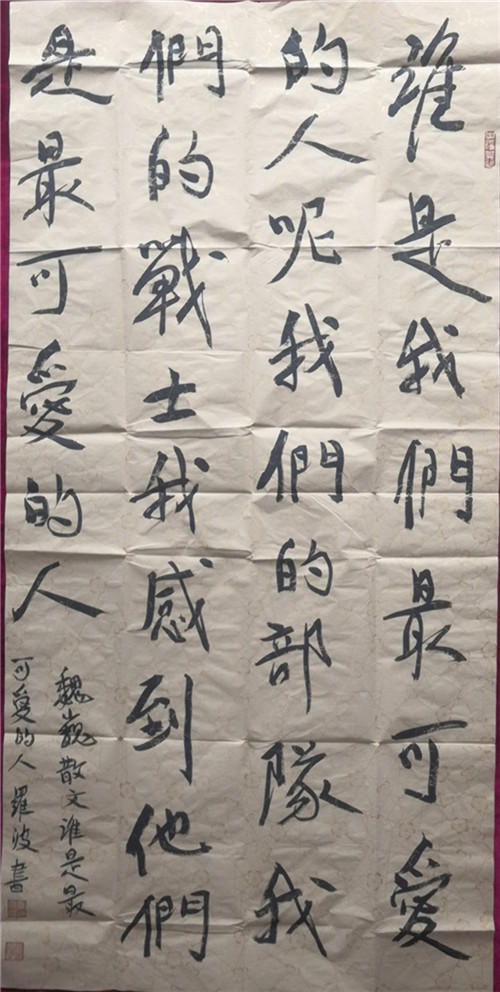 誰是我們最可愛
的人呢我們的部隊我
們的戰士我感到他們
是最可愛的人
魏巍散文誰是最
可愛的人羅波書